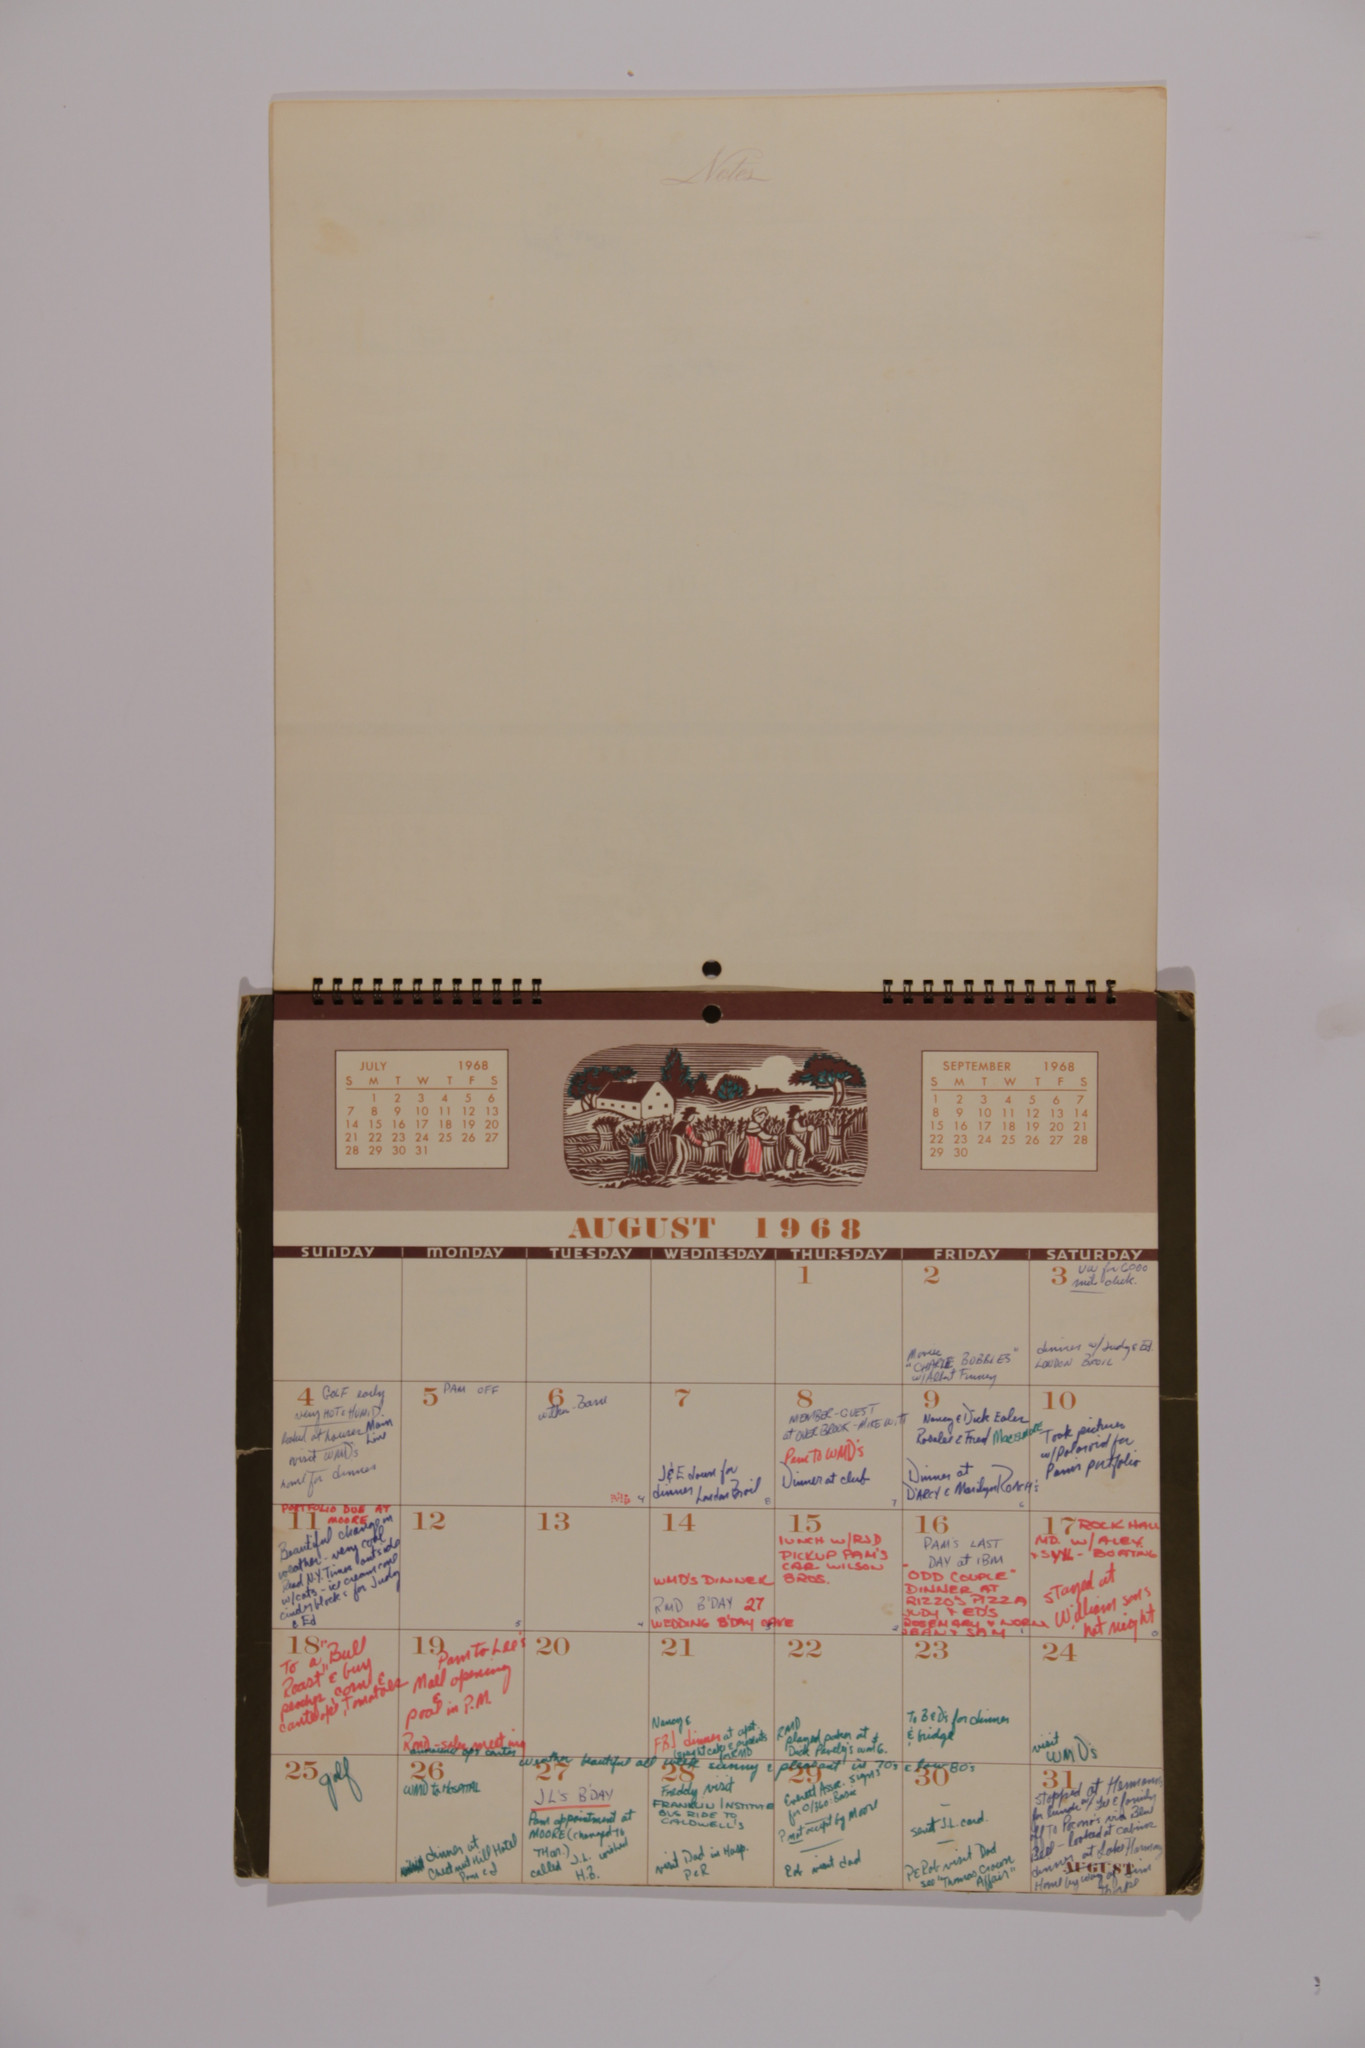 Notes
JULY 1968
S M T W T F S
1 2 3 4 5 6
7 8 9 10 11 12 13
14 15 16 17 18 19 20
21 22 23 24 25 26 27
28 29 30 31
SEPTEMBER 1968
S M T W T F S
1 2 3 4 5 6 7
8 9 10 11 12 13 14
15 16 17 18 19 20 21
22 23 24 25 26 27 28
29 30
AUGUST 1968
SUNDAY MONDAY TUESDAY WEDNESDAY THURSDAY FRIDAY SATURDAY
1
2
Movie
"CHARLIE BUBBLES"
w/Albert Finney
3 VW for 6000
mile check.
dinner w/Judy & Ed
LONDON BROIL
4 GOLF early
very HOT & HUMID.
looked at houses Main Line
visit WMD's
home for dinner
5 PAM OFF
6
7
J & E down for
dinner London Broil
8
MEMBER-GUEST
at OVERBROOK - MIKE
Pam TO WMD's
Dinner at club
9
Nancy & Dick Ealer
Rosalee & Fred
Dinner at
D'ARCY & Marilyn ROACH's
10
Took pictures
w/Polaroid for
Pam's portfolio
PORTFOLIO DUE AT
11 MOORE
Beautiful change in
weather - very cool
Read N.Y. Times outside
w/cats - ice cream cone
cinderblocks for Judy
& Ed
12
13
14
WMD'S DINNER
RMD B'DAY 27
WEDDING B'DAY CAKE
15
LUNCH W/RJD
PICKUP PAM'S
CAR WILSON
BROS.
16
PAM'S LAST
DAY at IBM
"ODD COUPLE"
DINNER AT
RIZZO'S PIZZA
JUDY & ED'S
ROSEMARY & NORM
JEAN & SAM
17 ROCK HALL
MD. W/ALEX
BOATING
stayed at
Williamsons
hot night
18
To a "Bull
Roast" & buy
peaches, corn &
cantelope, Tomatoes
19 Pam to Lee's
Mall opening
&
pool in P.M.
Rmd - sales meeting
20
21
Nancy &
FBJ dinner at apt.
22
RMD
played poker at
Dick
23
To B&D's for dinner
& bridge
24
visit
WMD's
weather beautiful all week sunny & pleasant in 70's & low 80's
25 golf
26
WMD to HOSPITAL
dinner at
Chestnut Hill Hotel
27
JL's B'DAY
Pam appointment at
MOORE (changed to
THUR.)
called J.L. wished
H.B.
28
Freddy visit
FRANKLIN INSTITUTE
BUS RIDE TO
CALDWELL'S
visit Dad in Hosp.
P & R
29
Everett Assoc. signs
for
Pam accept by Moore
Rob visit dad
30
sent J.L. card.
P & Rob visit Dad
see "Thomas Crown
Affair"
31
stopped at
for lunch w/ & family
off To Pocono's via Blue
looked at cabins
dinner at Lake Harmony
Home by way of Jim
Thorpe
AUGUST